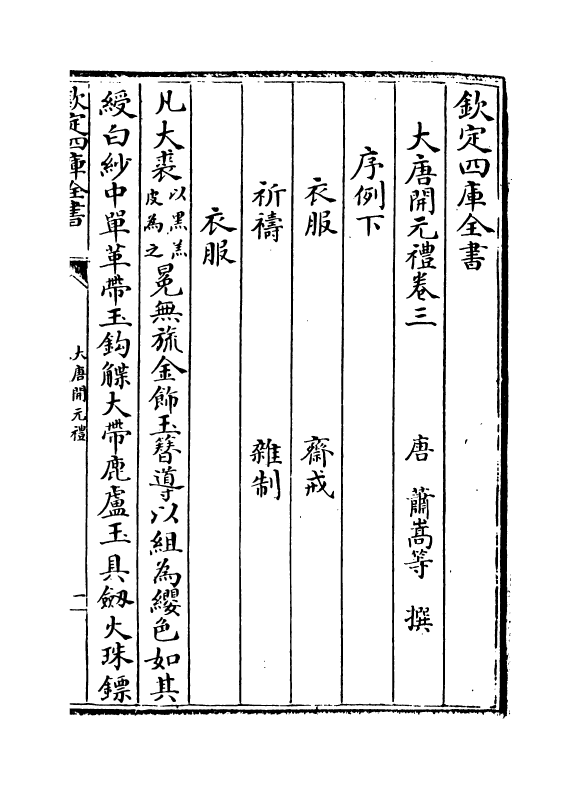 欽定四庫全書
大唐開元禮卷三
唐 蕭嵩等 撰
序例下
衣服 齋戒
祈禱 雜制
衣服
凡大裘以黑羔皮為之冕無旒金飾玉簪導以組為纓色如其
綬白紗中單革帶玉鈎䚢大帶鹿盧玉具劔火珠鏢
欽定四庫全書
大唐開元禮